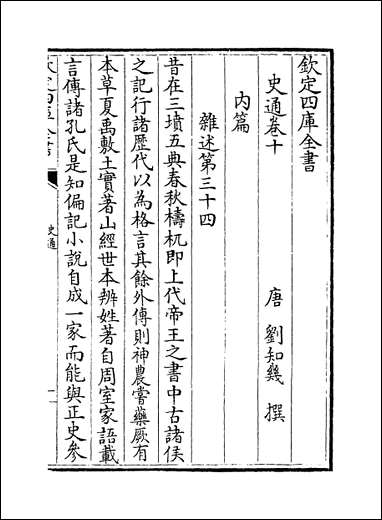 欽定四庫全書
史通卷十
唐 劉知幾 撰
内篇
雜述第三十四
昔在三墳五典春秋檮杌即上代帝王之書中古諸侯
之記行諸歴代以為格言其餘外傳則神農嘗藥厥有
本草夏禹敷土實著山經世本辨姓著自周室家語載
言傳諸孔氏是知偏記小說自成一家而能與正史參
史通